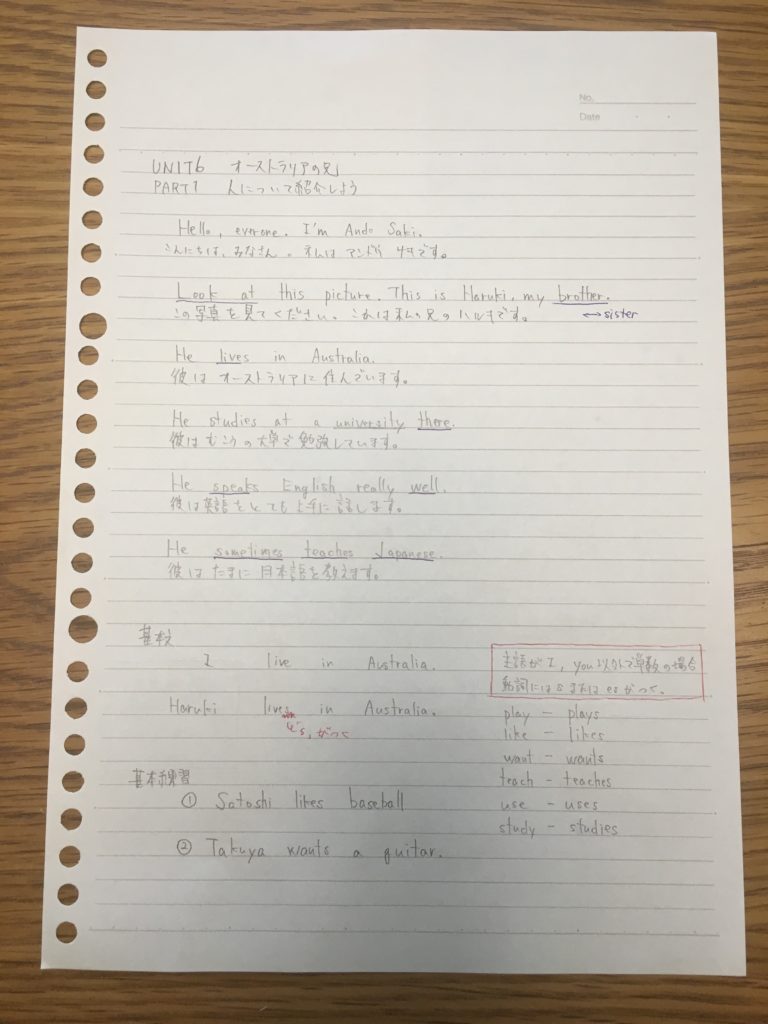 No.
Date
UNIT6 オーストラリアの兄
PART1 人について紹介しよう
Hello, everone. I'm Ando Saki.
こんにちは、みなさん。私はアンドウ サキです。
Look at this picture. This is Haruki, my brother.
この写真を見てください。これは私の兄のハルキです。 ↔sister
He lives in Australia.
彼はオーストラリアに住んでいます。
He studies at a university there.
彼はむこうの大学で勉強しています。
He speaks English really well.
彼は英語をとても上手に話します。
He sometimes teaches Japanese.
彼はたまに日本語を教えます。
基本文
I live in Australia.
Haruki lives in Australia.
↳"s"がつく
主語がI, you以外で単数の場合
動詞にはsまたはesがつく。
play - plays
like - likes
want - wants
teach - teaches
use - uses
study - studies
基本練習
① Satoshi likes baseball
② Takuya wants a guitar.